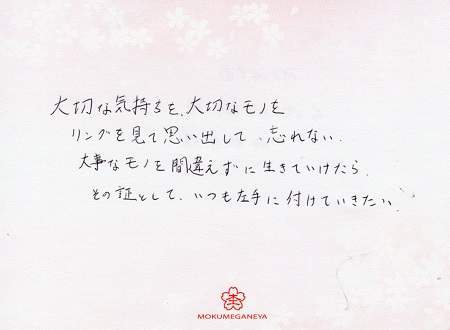 大切な気持ちを、大切なモノを
リングを見て思い出して、忘れない。
大事なモノを間違えずに生きていけたら。
その証として、いつも左手に付けていきたい。
MOKUMEGANEYA